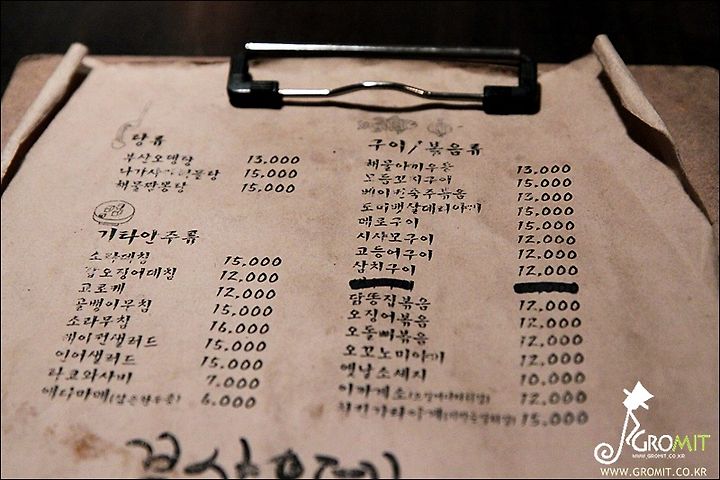 탕류
부산오뎅탕 13.000
15.000
해물짬뽕탕 15.000
기타안주류
소라데침 15.000
갑오징어데침 12.000
고로케 12.000
골뱅이무침 15.000
소라무침 16.000
베이컨샐러드 15.000
연어샐러드 15.000
타코와사비 7.000
에다마메 6.000
구이/볶음류
해물야끼우동 13.000
모듬꼬치구이 15.000
베이컨숙주볶음 13.000
도미뱃살데리야끼 15.000
메로구이 15.000
시샤모구이 12.000
고등어구이 12.000
삼치구이 12.000
닭똥집볶음 12.000
오징어볶음 12.000
오돌뼈볶음 12.000
오꼬노미야끼 12.000
옛날소세지 10.000
12.000
15.000
GROMIT
WWW.GROMIT.CO.KR
WWW.GROMIT.CO.KR